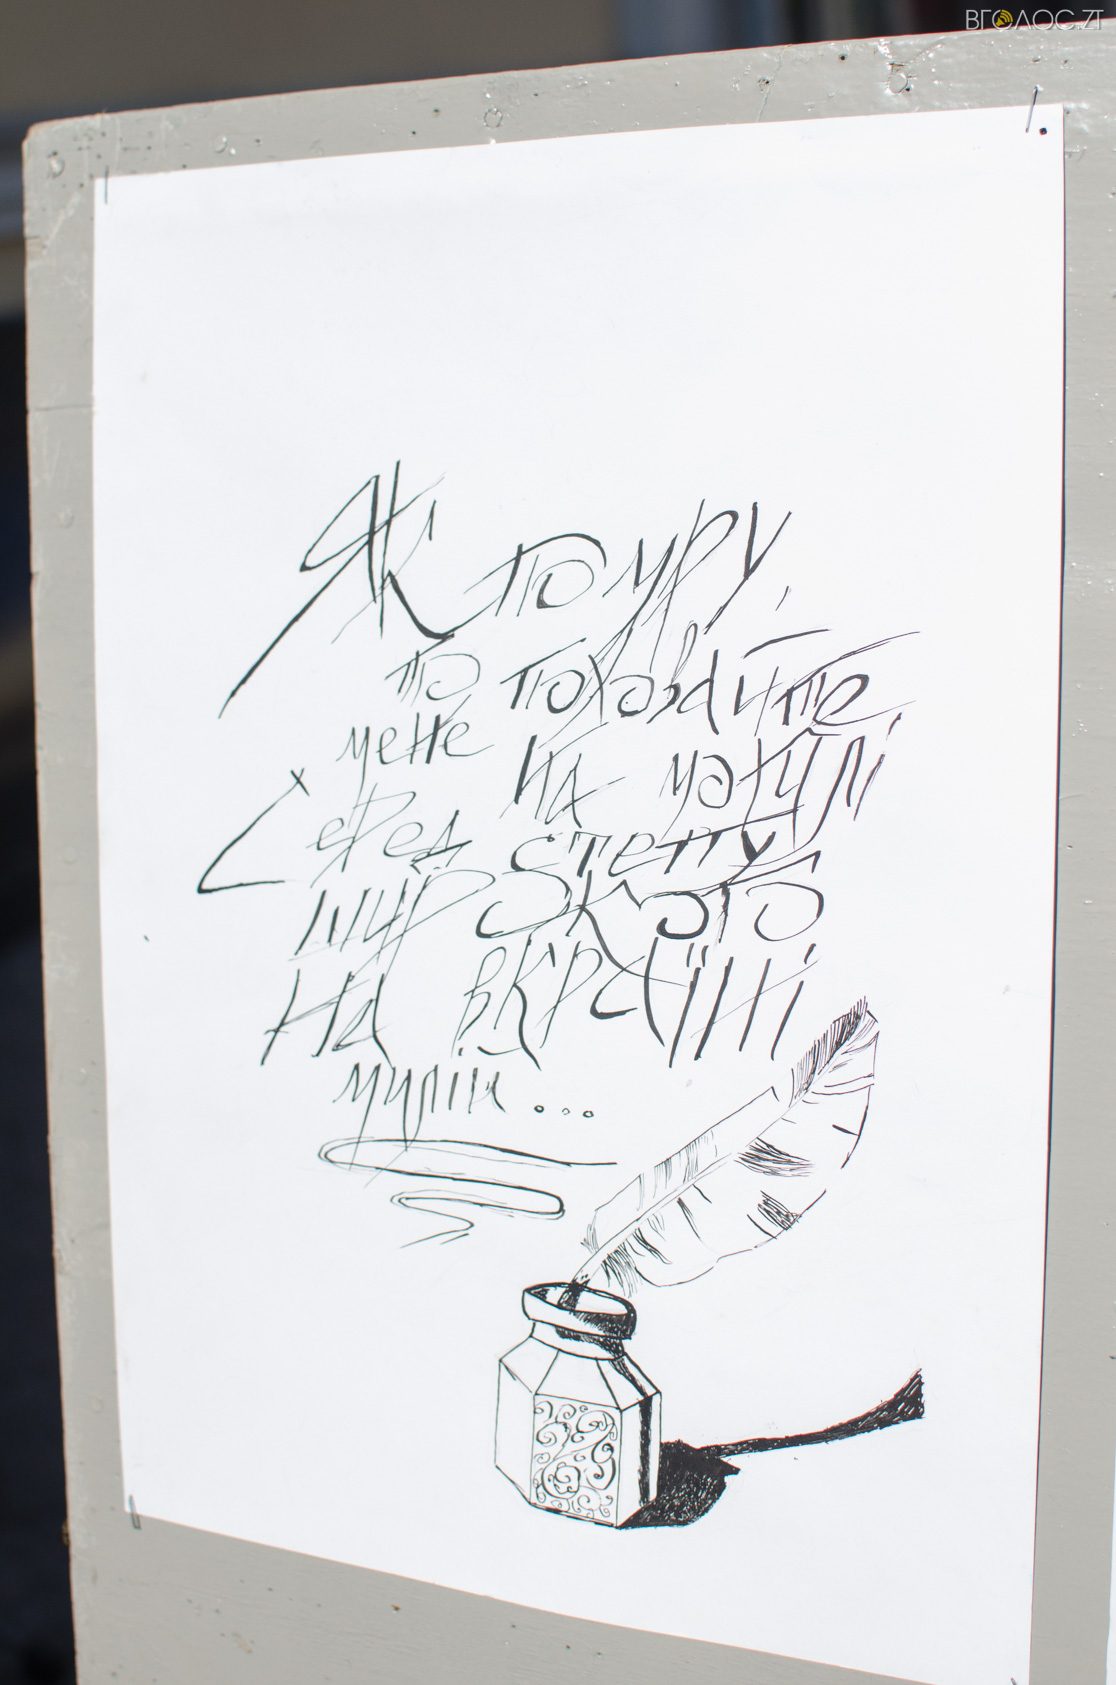 ВГОЛОС.ZT
Як помру,
то поховайте
мене на могилі
Серед степу
широкого
На вкраїні
милій...